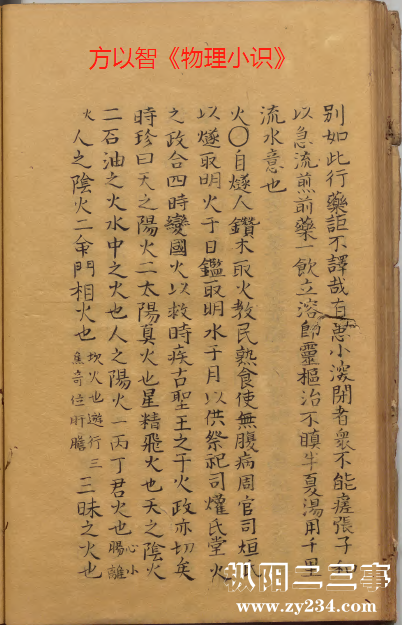 方以智《物理小识》
別如此行藥詎不譯哉有患小溲閉者衆不能瘥張子和
以急流煎前藥一飲立溶師靈樞治不瞑半夏湯用千里
流水意也
火〇自燧人鑽木取火教民熟食使無腹病周官司烜氏
以燧取明火于日鑑取明水于月以供祭祀司爟氏掌火
之政令四時變國火以救時疾古聖王之于火政亦切矣
時珍曰天之陽火二太陽真火也星精飛火也天之陰火
二石油之火水中之火也人之陽火一丙丁君火也心小腸離
火人之陰火二命門相火也坎火也遊行三焦寄位肝膽三昧之火也
枞阳二三事
www.zy234.com